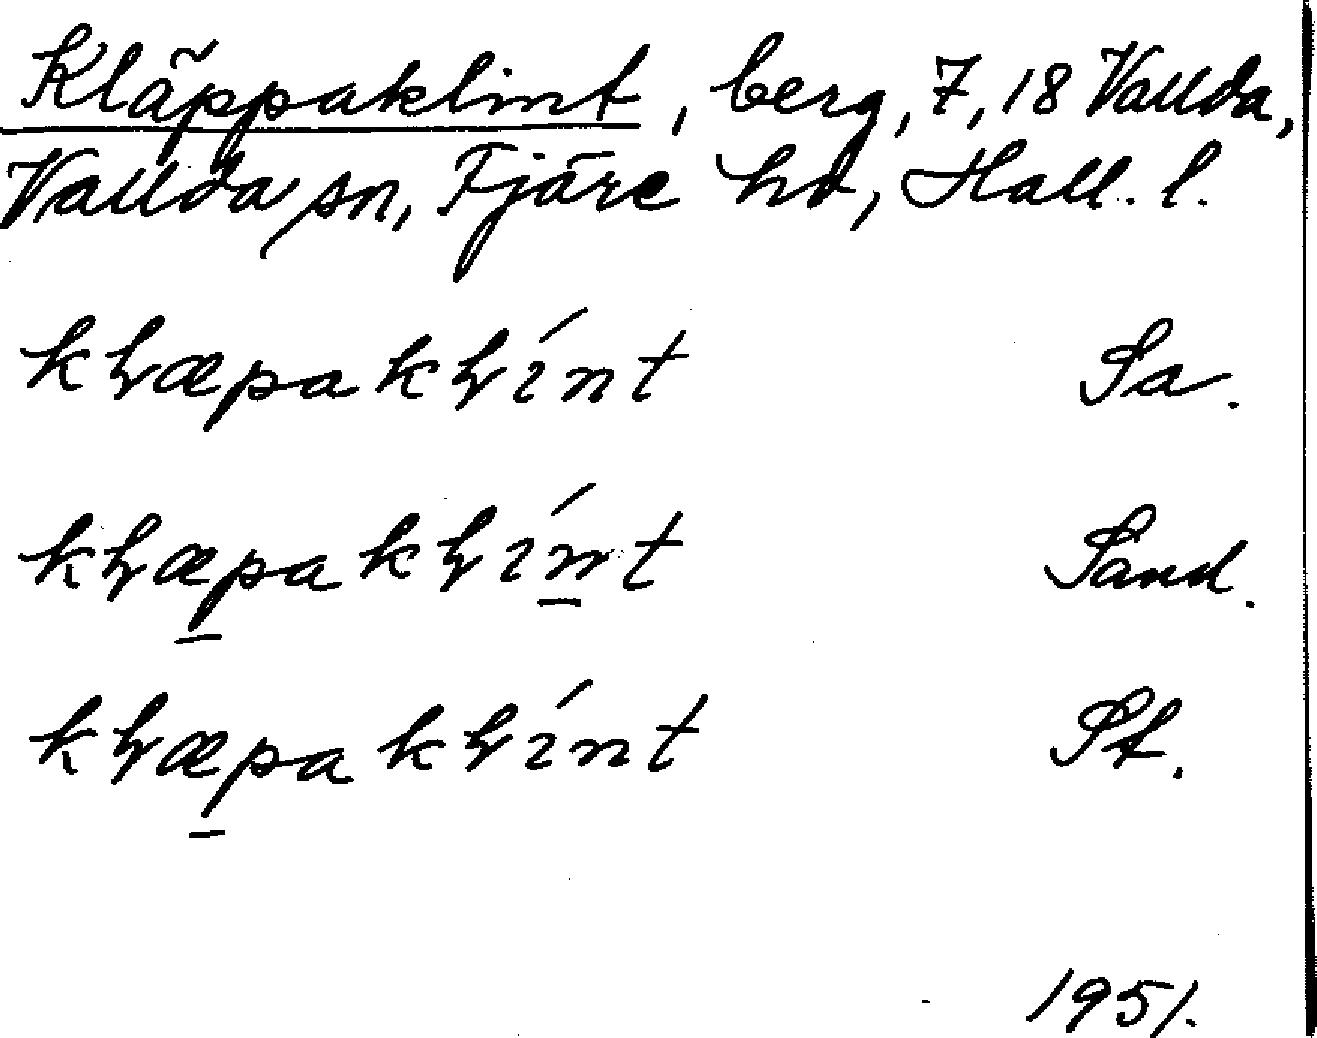 Kläppaklint, berg, 7, 18 Vallda,
Vallda sn, Fjäre hd, Hall. l.
kɽæpakɽínt Sa.
kɽæp̲akɽín̲t Sand.
kɽæp̲akɽínt St.
1951.